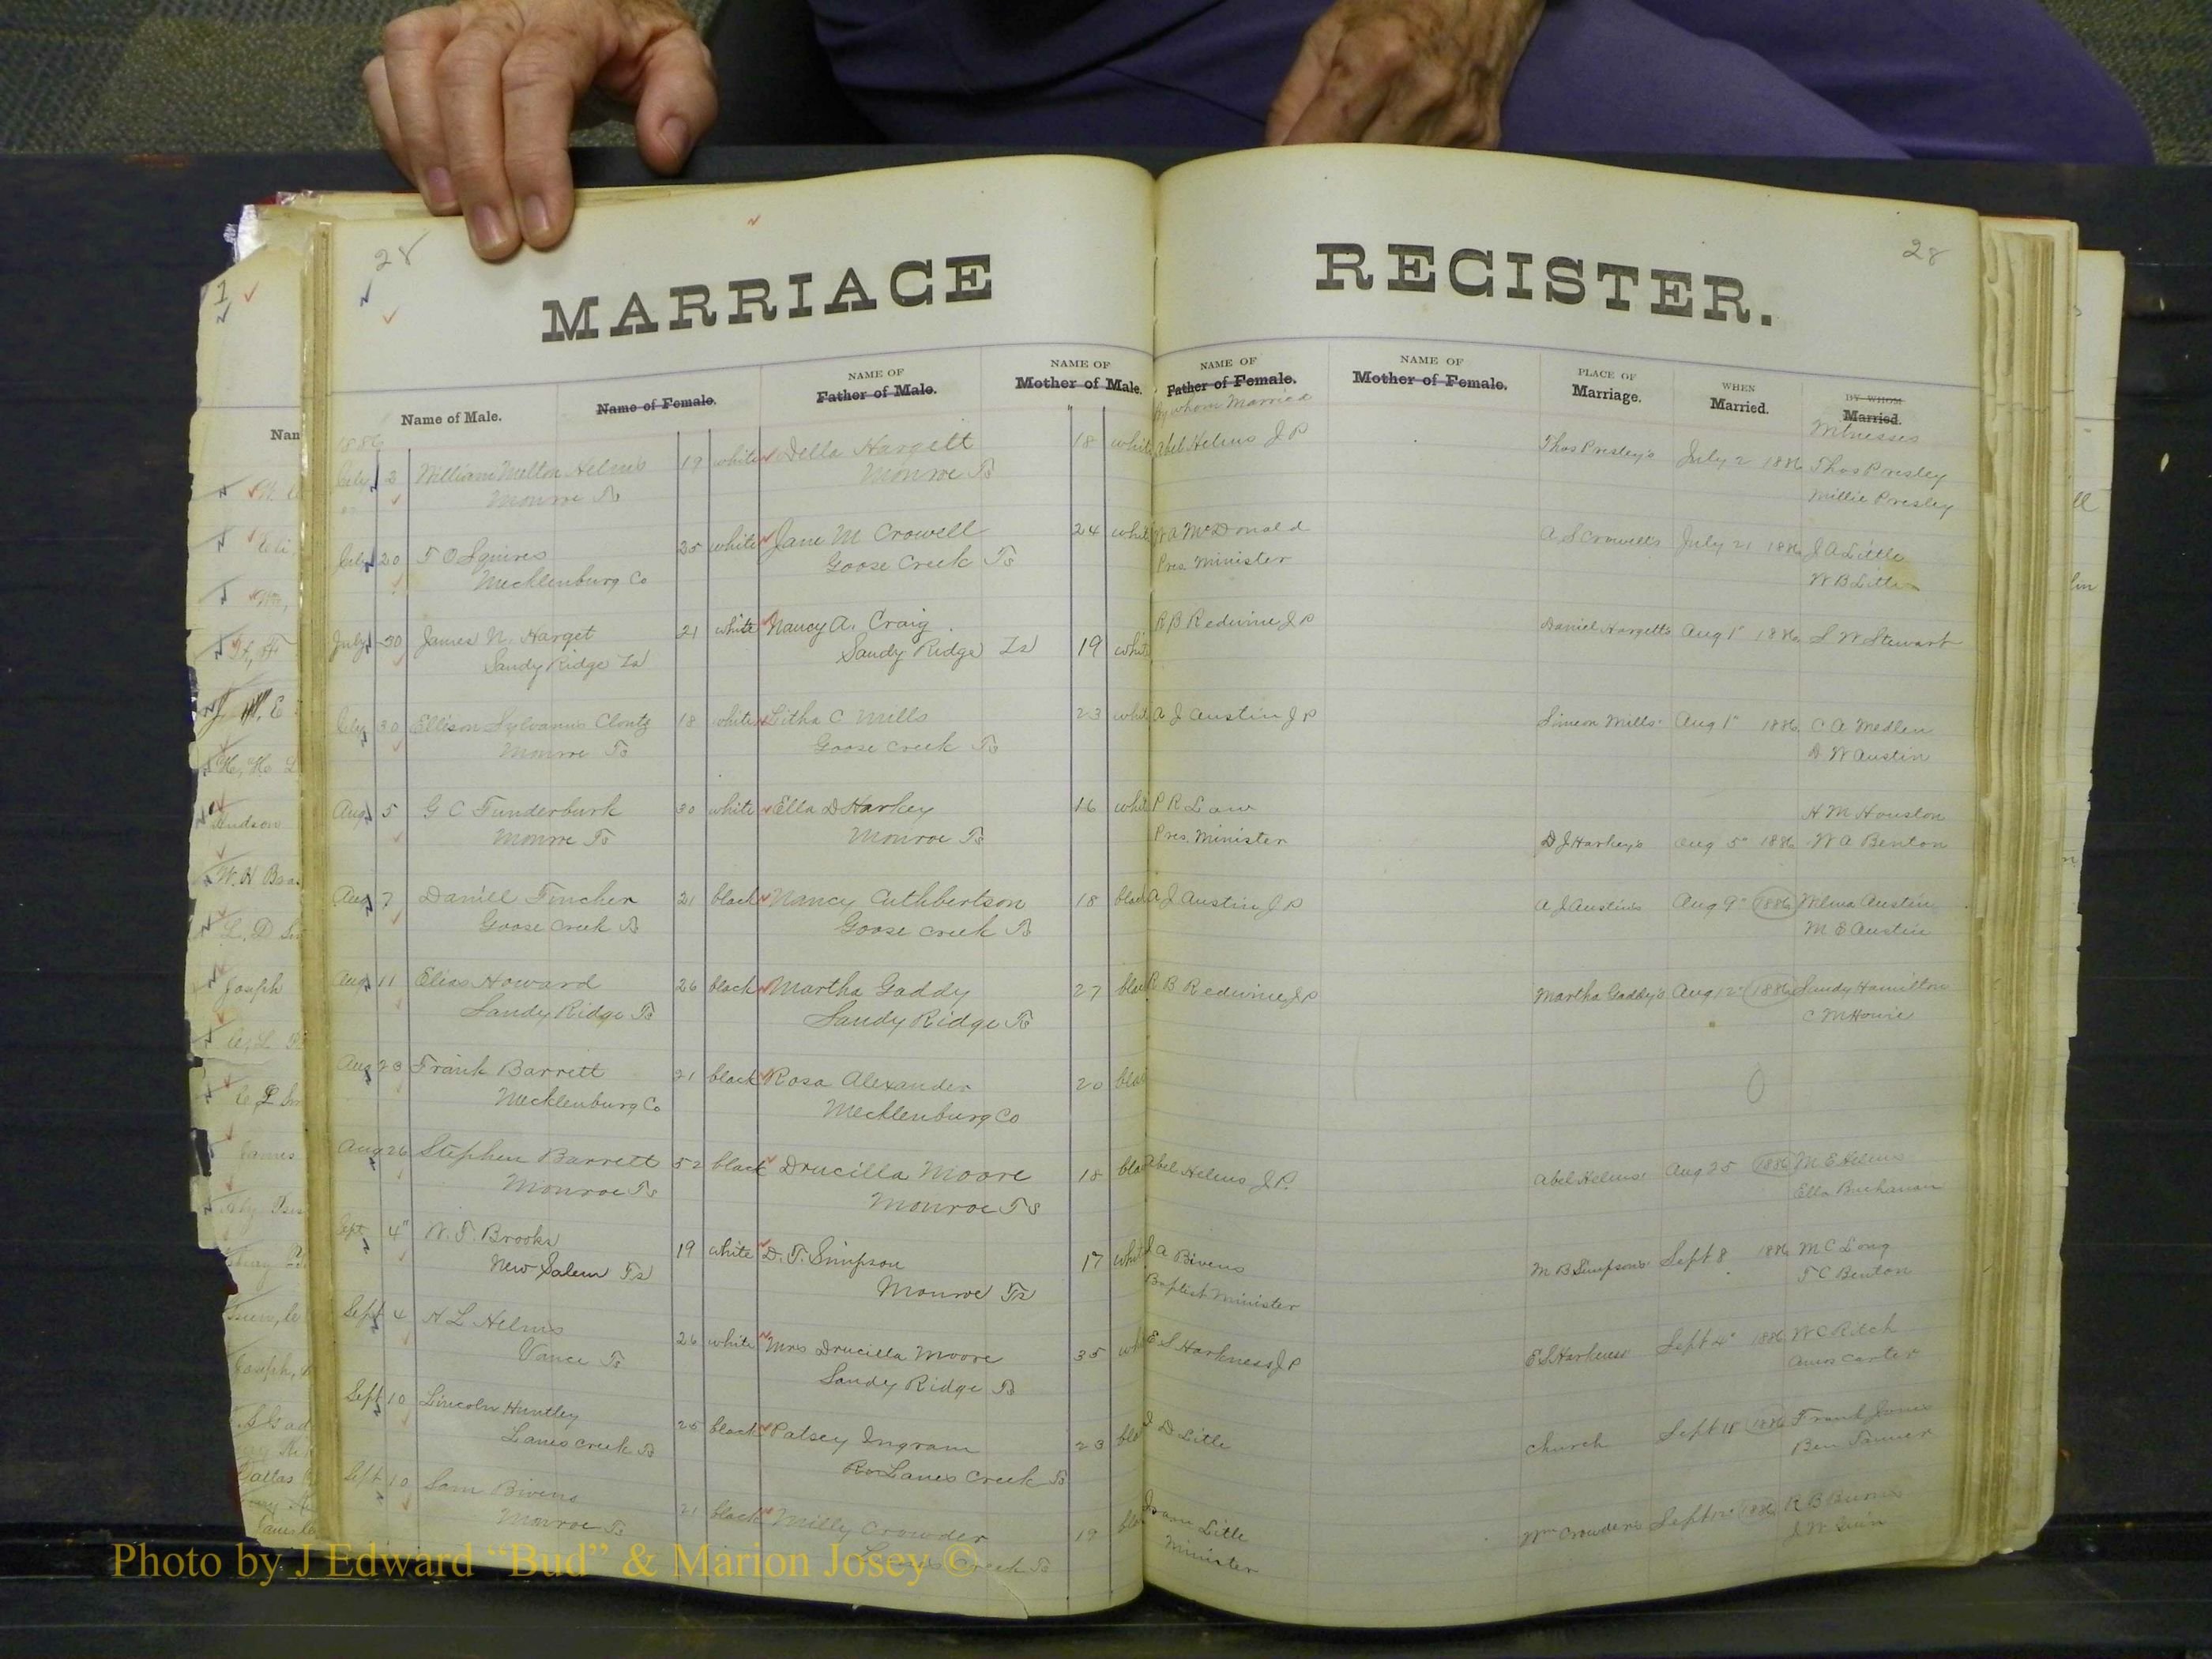 28
28
MARRIAGE REGISTER.
Name of Male.
Name of Female.
NAME OF Father of Male.
NAME OF Mother of Male.
NAME OF Father of Female.
By whom Married
NAME OF Mother of Female.
PLACE OF Marriage.
WHEN Married.
BY WHOM Married.
Witnesses
1886
July 2 William Melton Helms 19 white Della Hargett 18 whit Abel Helms J P Thos Presley's July 2 1886 Thos Presley
Monroe Ts Monroe Ts Millie Presley
July 20 T O Squires 25 white Jane M Crowell 24 whit W A McDonald A S Crowell's July 21 1886 J A Little
Mecklenburg Co Goose Creek Ts Pres. Minister W B Little
July 30 James N. Harget 21 white Nancy A. Craig 19 whit R B Redwine J P Daniel Hargett's Aug 1" 1886 S W Stewart
Sandy Ridge Ts Sandy Ridge Ts
July 30 Ellison Sylvanus Clontz 18 white Litha C Mills 23 whit A J Austin J P Simeon Mills' Aug 1" 1886 C A Medlin
Monroe Ts Goose Creek Ts D W Austin
Aug 5 G C Funderburk 30 white Ella D Harkey 16 whit P R Law H M Houston
Monroe Ts Monroe Ts Pres. Minister D J Harkey's Aug 5" 1886 W A Benton
Aug 7 Daniel Fincher 21 black Nancy Cuthbertson 18 blac A J Austin J P A J Austin's Aug 9" 1886 Wilma Austin
Goose Creek Ts Goose Creek Ts M E Austin
Aug 11 Elias Howard 26 black Martha Gaddy 27 blac R B Redwine J P Martha Gaddy's Aug 12" 1886 Sandy Hamilton
Sandy Ridge Ts Sandy Ridge Ts C M Howie
Aug 23 Frank Barrett 21 black Rosa Alexander 20 blac
Mecklenburg Co Mecklenburg Co
Aug 26 Stephen Barrett 52 black Drucilla Moore 18 blac Abel Helms J.P. Abel Helms' Aug 25 1886 M E Helms
Monroe Ts Monroe Ts Ella Buchanan
Sept 4" W. T. Brooks 19 white D. T. Simpson 17 whit J A Bivens M B Simpson's Sept 8 1886 M C Long
New Salem Ts Monroe Ts Baptist Minister T C Benton
Sept 4 H L Helms 26 white Mrs Drucilla Moore 35 wh E S Harkness J P E S Harkness' Sept 4" 1886 W C Ritch
Vance Ts Sandy Ridge Ts Amos Carter
Sept 10 Lincoln Huntley 25 black Patsey Ingram 23 bla D Little Church Sept 18 1886 Frank Jones
Lanes Creek Ts Lanes Creek Ts Ben Tanner
Sept 10 Sam Bivens 21 black Milly Crowder 19 bla Isam Little Wm Crowder's Sept 1886 R B
Monroe Ts Creek Ts Minister J W
Photo by J Edward “Bud” & Marion Josey ©